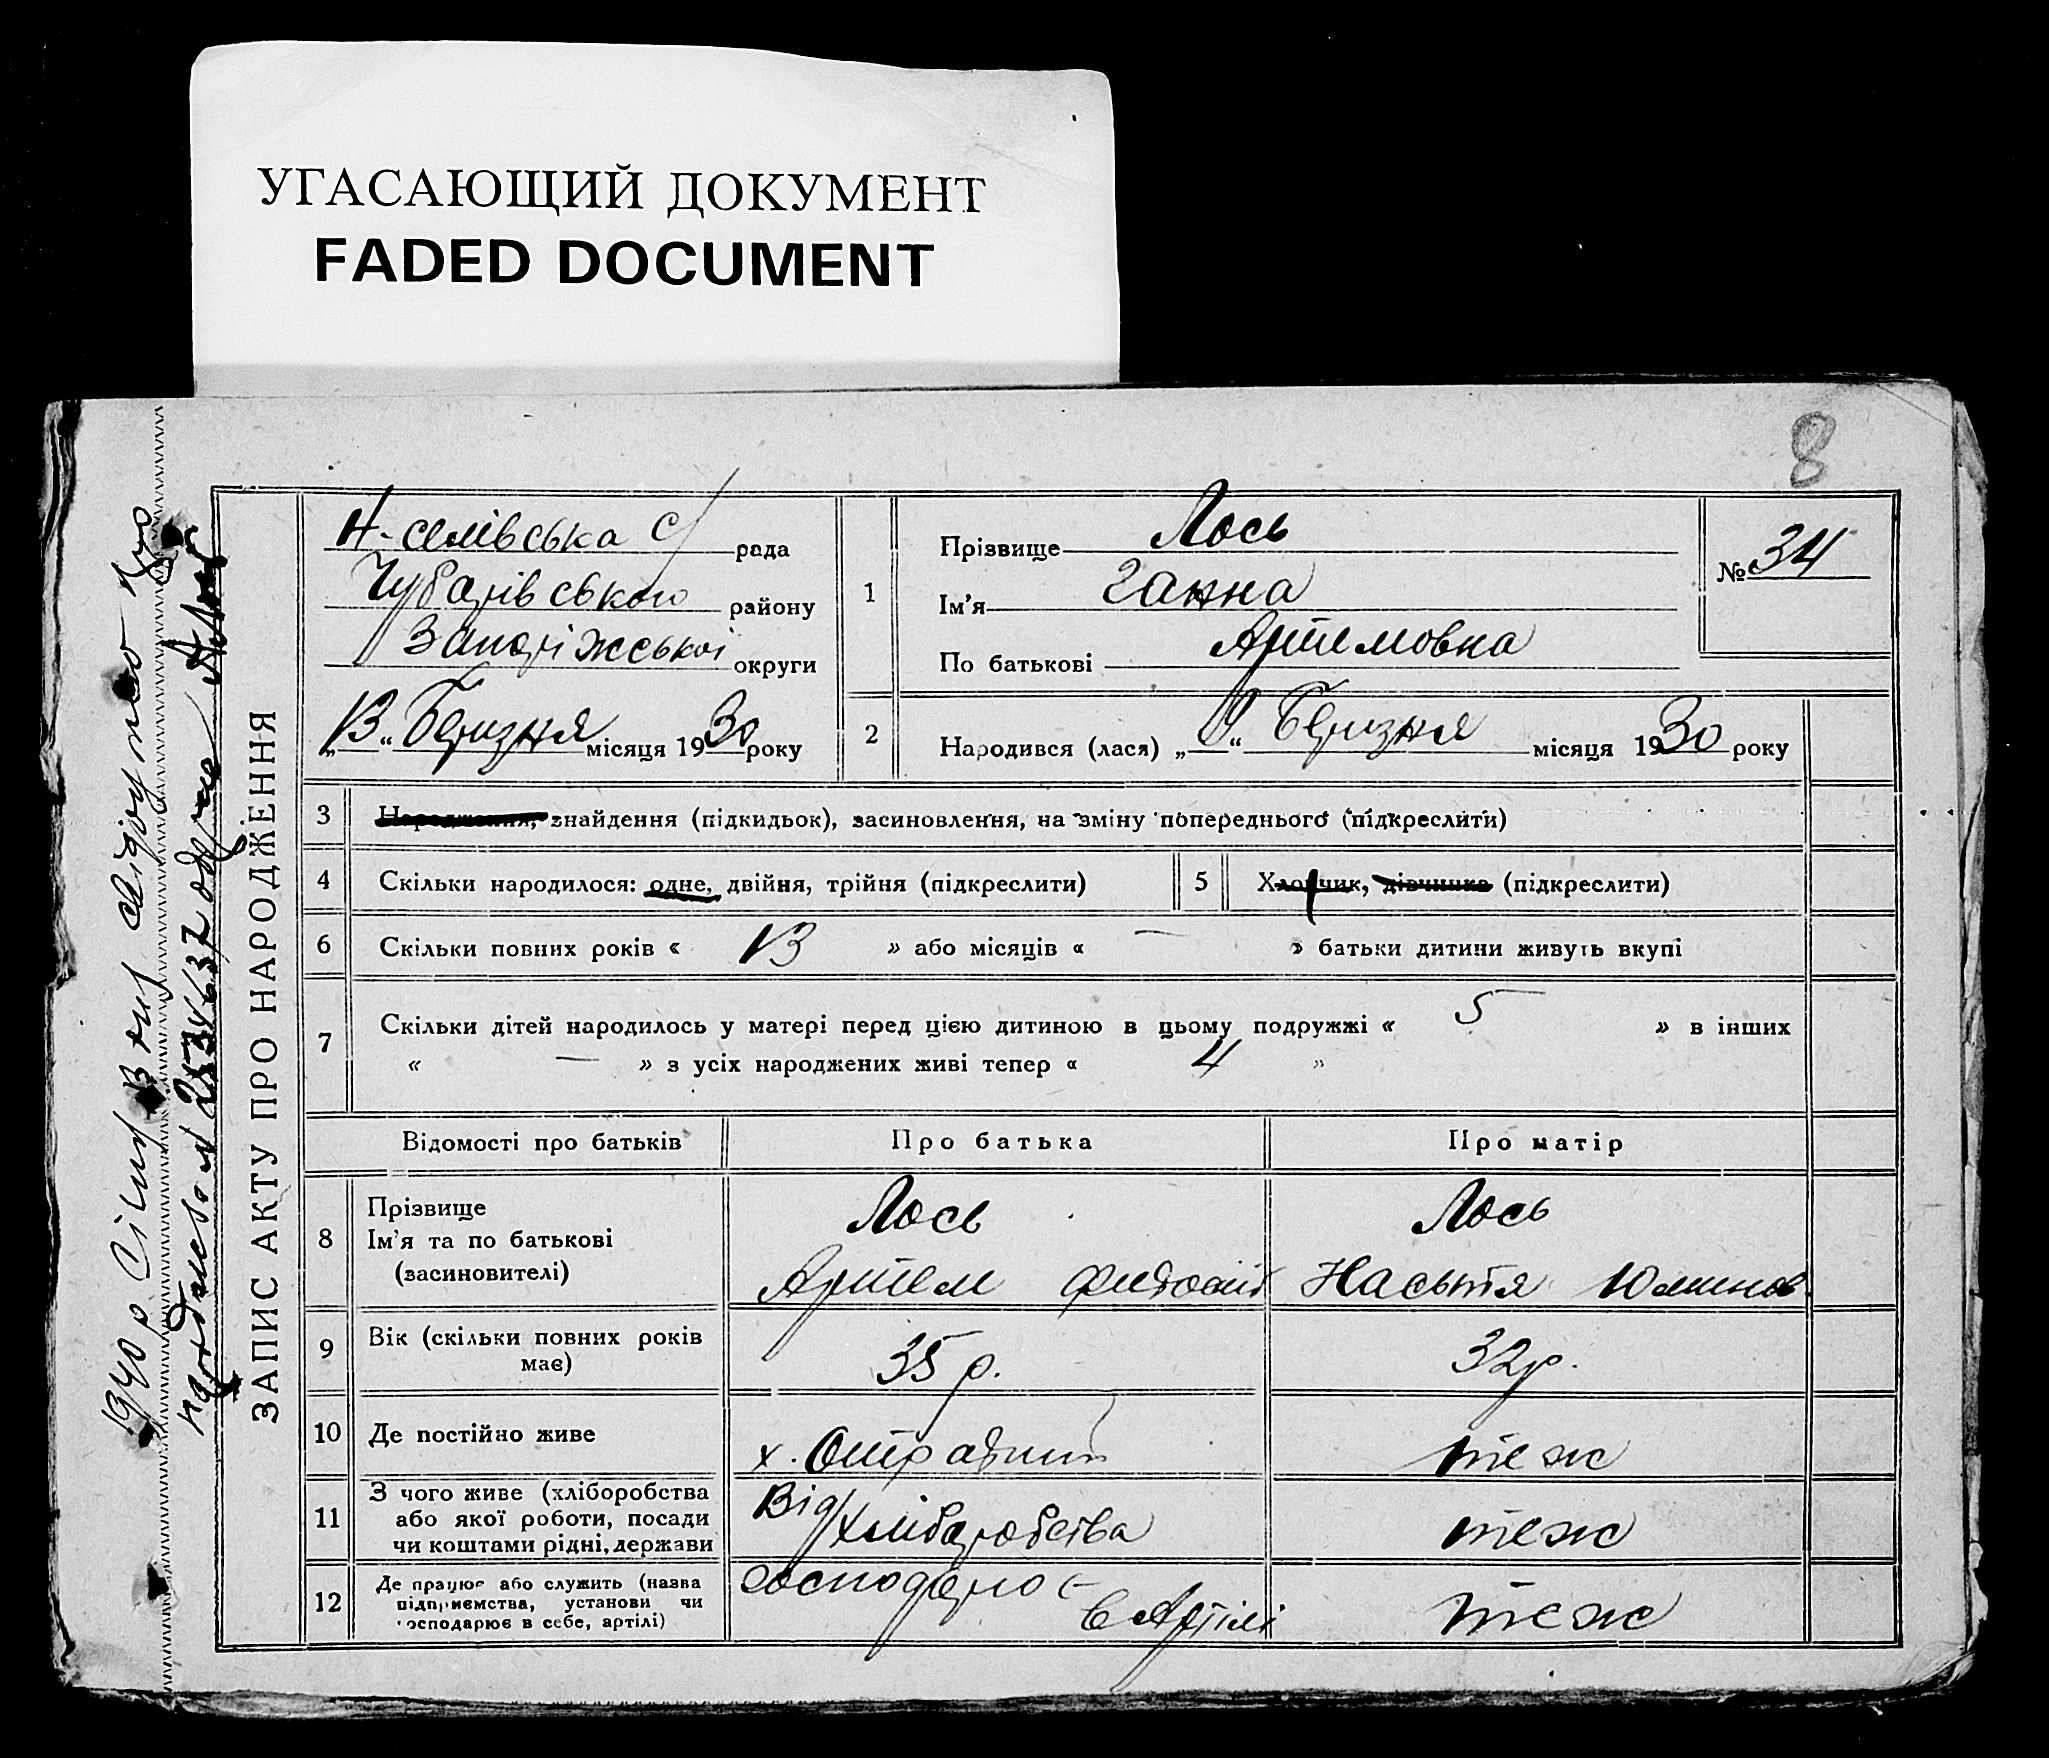 УГАСАЮЩИЙ ДОКУМЕНТ
FADED DOCUMENT
8
ЗАПИС АКТУ ПРО НАРОДЖЕННЯ
Н-селівська с/ рада
Чубарівського району
Запоріжської округи
„13“ Березня місяця 1930 року
1
Прізвище Лось
Ім'я Ганна
По батькові Артемовна
№ 34
2
Народився (лася) Березня місяця 1930 року
3 Народження, знайдення (підкидьок), засиновлення, на зміну попереднього (підкреслити)
4 Скільки народилося: одне, двійня, трійня (підкреслити)
5 Хлопчик, дівчинка (підкреслити)
6 Скільки повних років « 13 » або місяців « — » батьки дитини живуть вкупі
7 Скільки дітей народилось у матері перед цією дитиною в цьому подружжі « 5 » в інших
« — » з усіх народжених живі тепер « 4 »
Відомості про батьків
Про батька
Про матір
8 Прізвище
Ім'я та по батькові
(засиновителі)
Лось
Артем
Лось
Насьтя
9 Вік (скільки повних років
має)
35 р.
32 р.
10 Де постійно живе
х. Отрадний
теж
11 З чого живе (хліборобства
або якої роботи, посади
чи коштами рідні, держави
Від хліборобства
теж
12 Де працює або служить (назва
підприємства, установи чи
господарює в себе, артілі)
господарює
в Артілі
теж